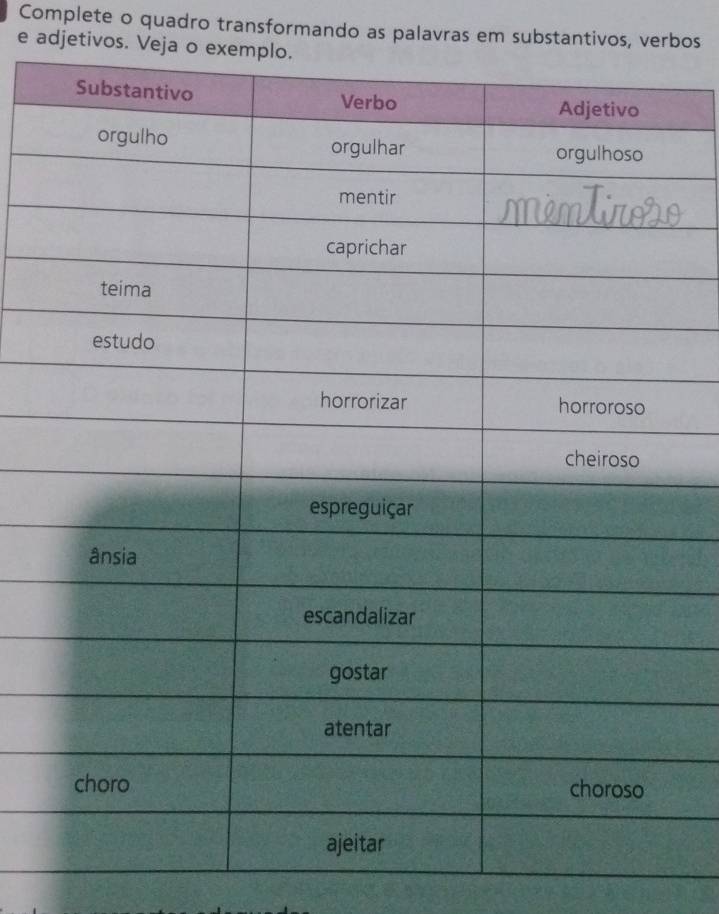 Complete o quadro transformando as palavras em substantivos, verbos
e adjetivos. Veja o exemplo.
Substantivo Verbo Adjetivo
orgulho orgulhar orgulhoso
mentir mentiroso
caprichar
teima
estudo
horrorizar horroroso
cheiroso
espreguiçar
ânsia
escandalizar
gostar
atentar
choro choroso
ajeitar